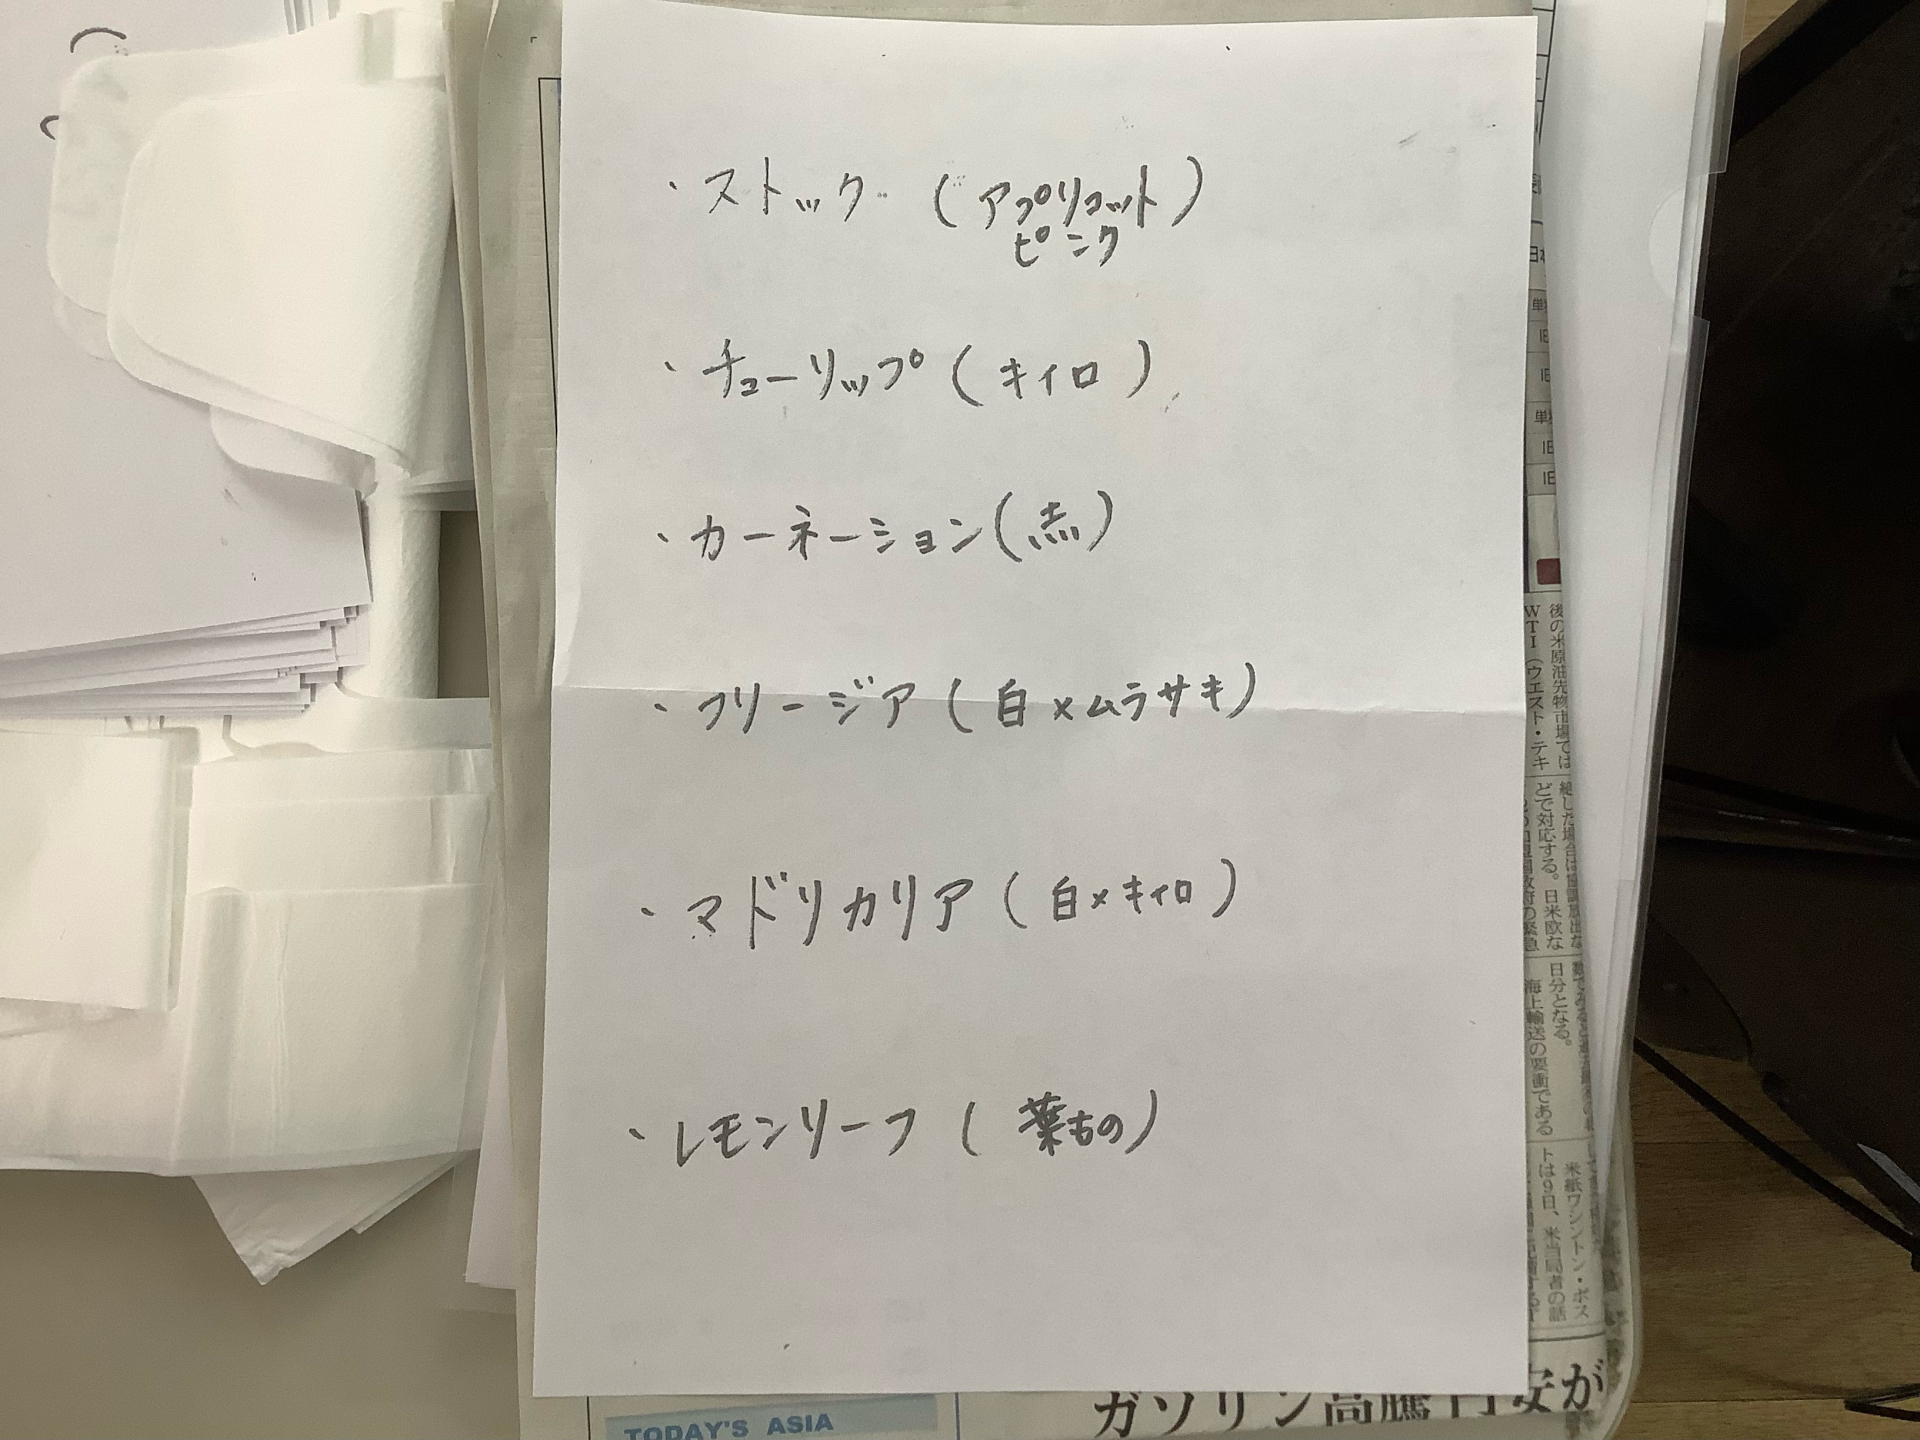 ・ストック（アプリコット
ピンク）
・チューリップ（キイロ）
・カーネーション（赤）
・フリージア（白×ムラサキ）
・マドリカリア（白×キイロ）
・レモンリーフ（葉もの）
後の米原油先物市場では
WTI（ウエスト・テキ
どで対応する。日米欧な
日分となる。
海上輸送の要衝である
米紙ワシントン・ポス
トは9日、米当局者の話
TODAY'S ASIA
ガソリン高騰 円安が